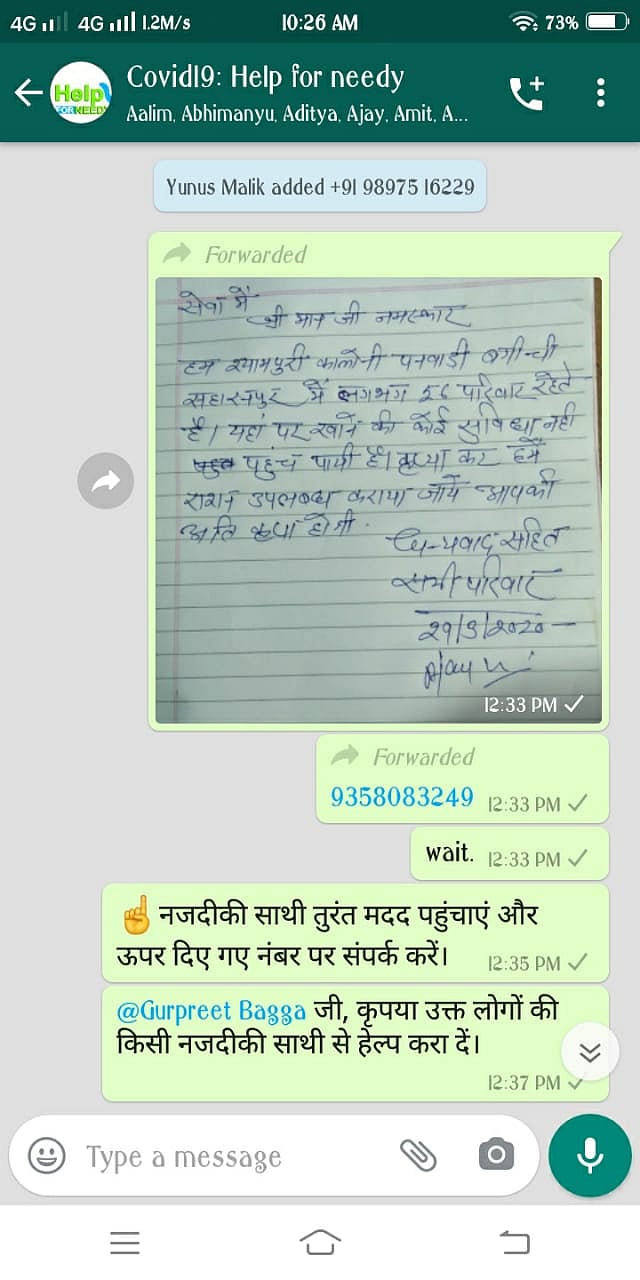 4G 4G 1.2M/s 10:26 AM 73%
Help
FOR NEEDY
Covid19: Help for needy
Aalim, Abhimanyu, Aditya, Ajay, Amit, A...
Yunus Malik added +91 98975 16229
Forwarded
सेवा में
श्री मान जी नमस्कार
हम श्यामपुरी कालोनी पनवाडी बगीची
सहारनपुर में लगभग 56 परिवार रहते
है। यहां पर खाने की कोई सुविधा नही
पहुंच पायी है। कृप्या कर हमें
राशन उपलब्ध कराया जाये आपकी
अति कृपा होगी.
धन्यवाद सहित
सभी परिवार
29/3/2020
Ajay
12:33 PM
Forwarded
9358083249 12:33 PM
wait. 12:33 PM
☝ नजदीकी साथी तुरंत मदद पहुंचाएं और
ऊपर दिए गए नंबर पर संपर्क करें।
12:35 PM
@Gurpreet Bagga जी, कृपया उक्त लोगों की
किसी नजदीकी साथी से हेल्प करा दें।
12:37 PM
Type a message